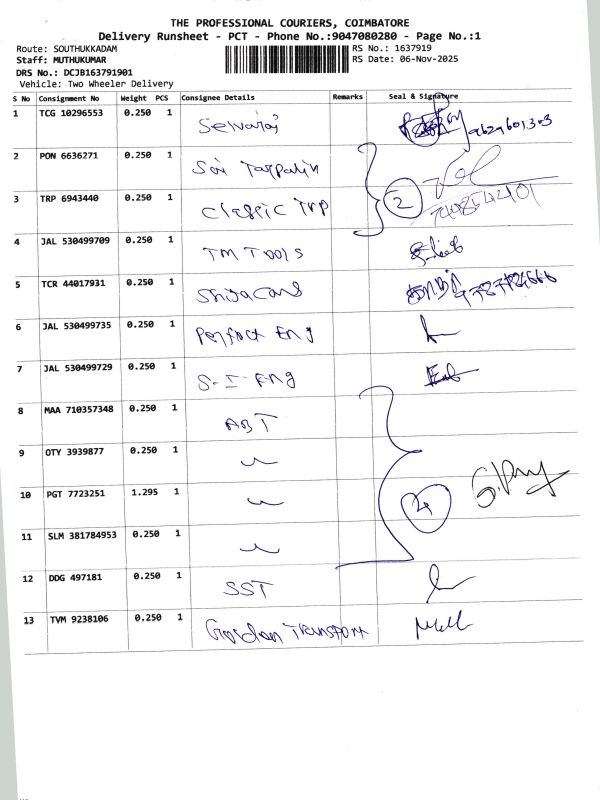 THE PROFESSIONAL COURIERS, COIMBATORE
Delivery Runsheet - PCT - Phone No.:9047080280 - Page No.:1
Route: SOUTHUKKADAM RS No.: 1637919
Staff: MUTHUKUMAR RS Date: 06-Nov-2025
DRS No.: DCJB163791901
Vehicle: Two Wheeler Delivery
S No Consignment No Weight PCS Consignee Details Remarks Seal & Signature
1 TCG 10296553 0.250 1 Selvaraj 9629601303
2 PON 6636271 0.250 1 Sai Tarpalin
3 TRP 6943440 0.250 1 Classic Trp 2
4 JAL 530499709 0.250 1 TM TOOLS
5 TCR 44017931 0.250 1
6 JAL 530499735 0.250 1 Perfect Eng
7 JAL 530499729 0.250 1 S-I Eng
8 MAA 710357348 0.250 1 ABT
9 OTY 3939877 0.250 1
10 PGT 7723251 1.295 1 4
11 SLM 381784953 0.250 1
12 DDG 497181 0.250 1 SST
13 TVM 9238106 0.250 1 Transport